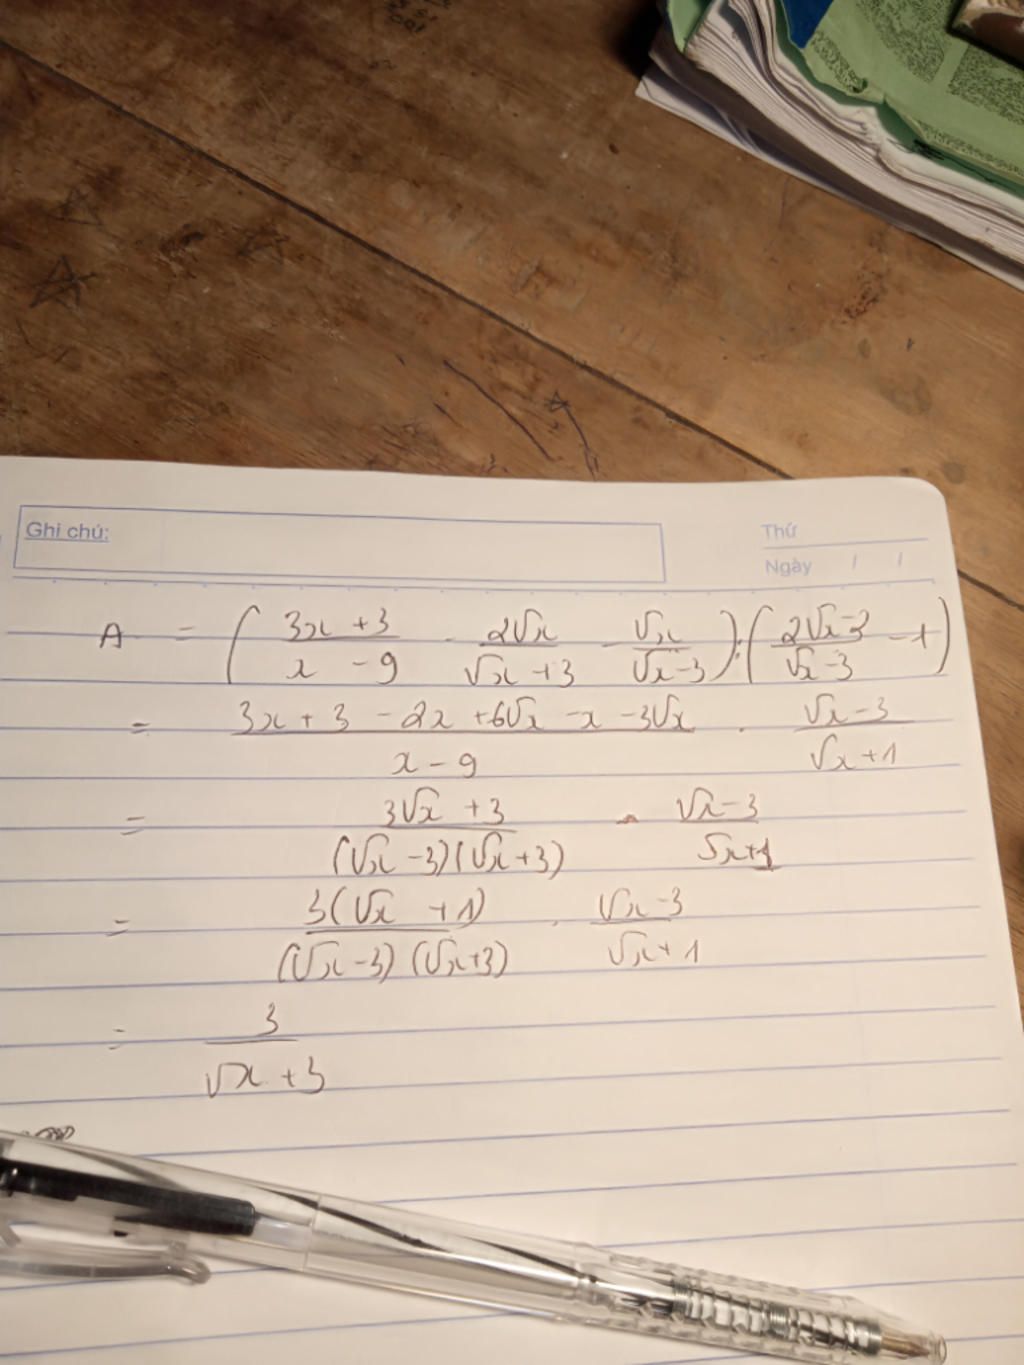 Ghi chú:
Thứ
Ngày / /
A = ( (3x + 3)/(x - 9) - 2√x/(√x + 3) - √x/(√x - 3) ) : ( (2√x - 2)/(√x - 3) - 1 )
= (3x + 3 - 2x + 6√x - x - 3√x)/(x - 9) . (√x - 3)/(√x + 1)
= (3√x + 3)/((√x - 3)(√x + 3)) . (√x - 3)/(√x + 1)
= 3(√x + 1)/((√x - 3)(√x + 3)) . (√x - 3)/(√x + 1)
= 3/(√x + 3)